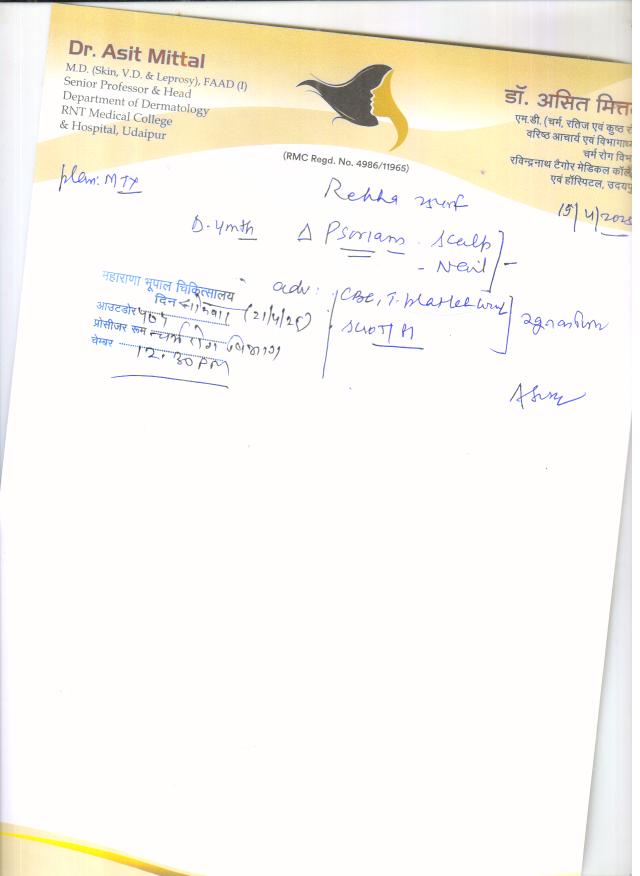 Dr. Asit Mittal
M.D. (Skin, V.D. & Leprosy), FAAD (I)
Senior Professor & Head
Department of Dermatology
RNT Medical College
& Hospital, Udaipur
डॉ. असित मित्त
एम.डी. (चर्म, रतिज एवं कुष्ठ र
वरिष्ठ आचार्य एवं विभागाध्य
चर्म रोग विभ
रविन्द्रनाथ टैगोर मेडिकल कॉले
एवं हॉस्पिटल, उदयपु
(RMC Regd. No. 4986/11965)
plan: MTX
Rekha
15/4/2025
D. 4mth Δ Psoriasis . Scalp
- Nail
adv: CBC, T. platelet
SGOT/PT
महाराणा भूपाल चिकित्सालय
दिन सोमवार (21/4/25)
आउटडोर 107
प्रोसीजर रूम चर्म रोग विभाग
चेम्बर 12.30 PM